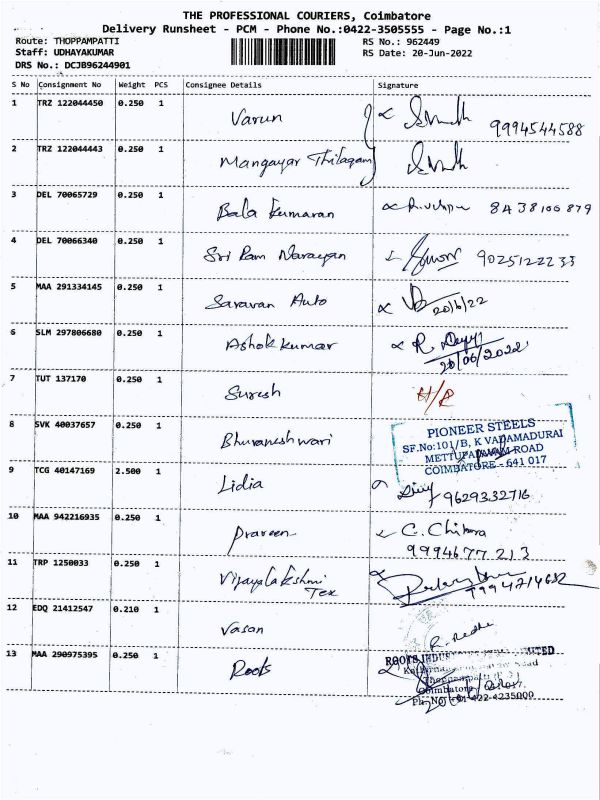 THE PROFESSIONAL COURIERS, Coimbatore
Delivery Runsheet - PCM - Phone No.:0422-3505555 - Page No.:1
Route: THOPPAMPATTI RS No.: 962449
Staff: UDHAYAKUMAR RS Date: 20-Jun-2022
DRS No.: DCJB96244901
S No Consignment No Weight PCS Consignee Details Signature
1 TRZ 122044450 0.250 1 Varun 9994544588
2 TRZ 122044443 0.250 1 Mangayar Thilagam
3 DEL 70065729 0.250 1 Bala Kumaran 8438106879
4 DEL 70066340 0.250 1 Sri Ram Narayan 9025122233
5 MAA 291334145 0.250 1 Saravan Auto 20/6/22
6 SLM 297806680 0.250 1 Ashok Kumar R. 20/06/2022
7 TUT 137170 0.250 1 Suresh
8 SVK 40037657 0.250 1 Bhuvaneshwari
PIONEER STEELS
SF.No:101/B, K VADAMADURAI
METTUPALAYAM ROAD
COIMBATORE - 641 017
9 TCG 40147169 2.500 1 Lidia 9629332716
10 MAA 942216935 0.250 1 Praveen C. Chitra
9994677213
11 TRP 1250033 0.250 1 Vijayalakshmi
Tex
12 EDQ 21412547 0.210 1 Vasan
13 MAA 290975395 0.250 1 Roots
ROOTS LIMITED
Road
Thoppampatti
Coimbatore
Ph No +91-422-4235009